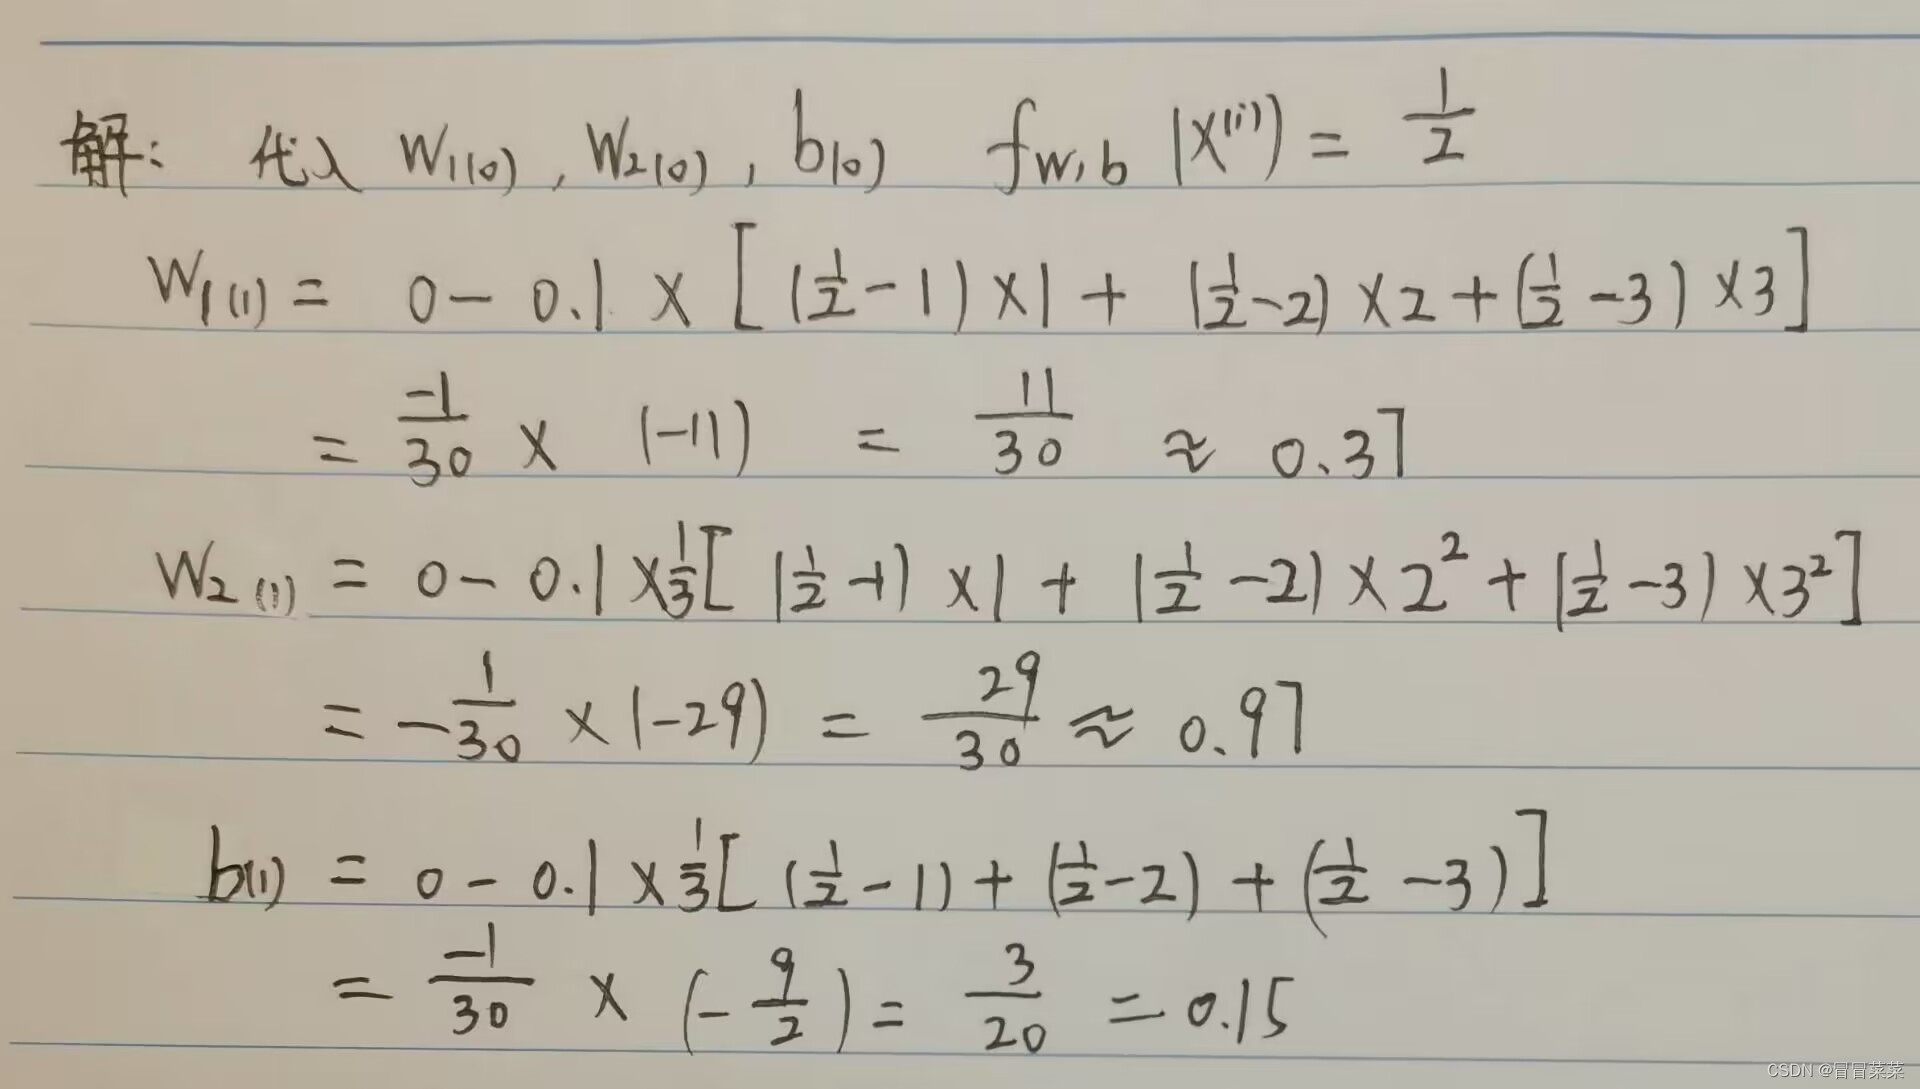 解: 代入 W₁₍₀₎, W₂₍₀₎, b₍₀₎ f_{w,b} (X⁽ⁱ⁾) = 1/2
W₁₍₁₎ = 0 - 0.1 × [(1/2 - 1) × 1 + (1/2 - 2) × 2 + (1/2 - 3) × 3]
= -1/30 × (-11) = 11/30 ≈ 0.37
W₂₍₁₎ = 0 - 0.1 × 1/3 [(1/2 - 1) × 1 + (1/2 - 2) × 2² + (1/2 - 3) × 3²]
= - 1/30 × (-29) = 29/30 ≈ 0.97
b₍₁₎ = 0 - 0.1 × 1/3 [(1/2 - 1) + (1/2 - 2) + (1/2 - 3)]
= -1/30 × (- 9/2) = 3/20 = 0.15
CSDN @冒冒菜菜